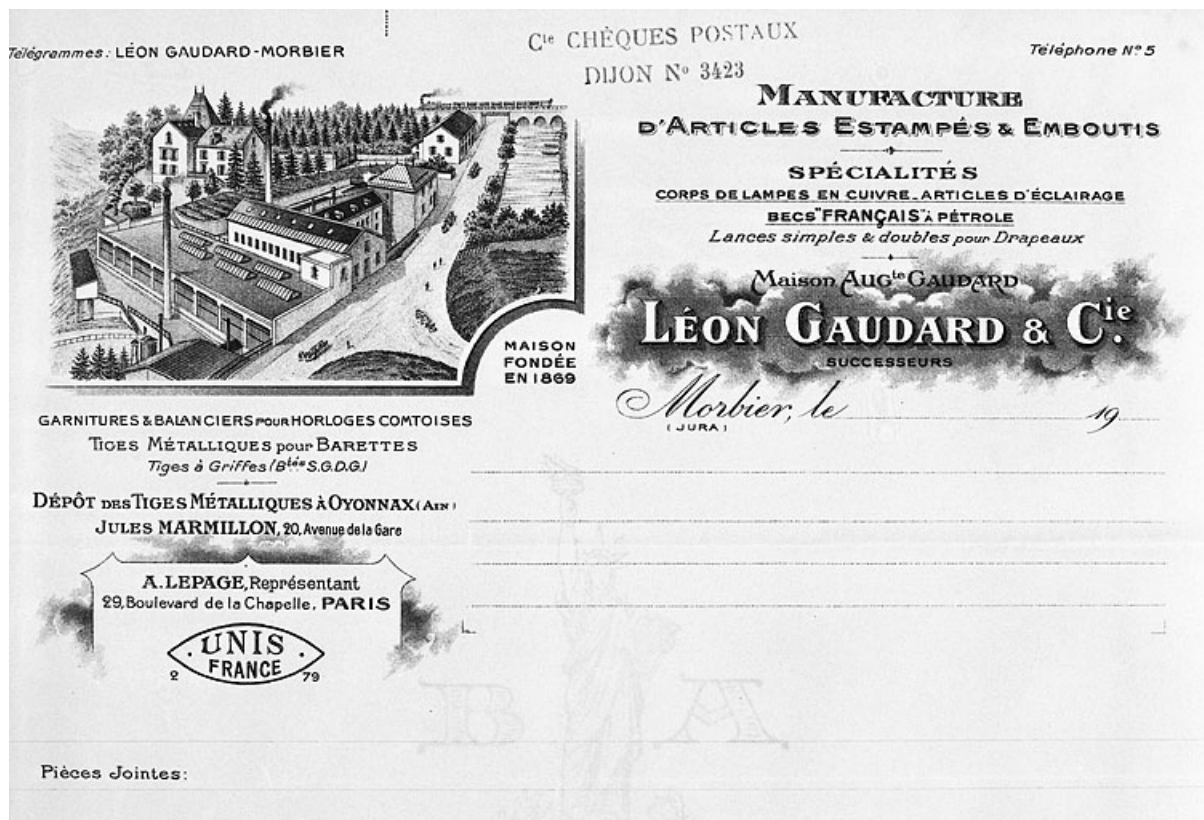 Télégrammes: LÉON GAUDARD-MORBIER
Cie CHÈQUES POSTAUX
DIJON No 3423
Téléphone No 5
MANUFACTURE
D'ARTICLES ESTAMPÉS & EMBOUTIS
SPÉCIALITÉS
CORPS DE LAMPES EN CUIVRE_ARTICLES D'ÉCLAIRAGE
BECS "FRANÇAIS" À PÉTROLE
Lances simples & doubles pour Drapeaux
Maison AUGte GAUDARD
LÉON GAUDARD & Cie.
SUCCESSEURS
MAISON
FONDÉE
EN 1869
Morbier, le 19
(JURA)
GARNITURES & BALANCIERS POUR HORLOGES COMTOISES
TIGES MÉTALLIQUES pour BARETTES
Tiges à Griffes (Btées S.G.D.G.)
DÉPÔT DES TIGES MÉTALLIQUES À OYONNAX (AIN)
JULES MARMILLON, 20, Avenue de la Gare
A. LEPAGE, Représentant
29, Boulevard de la Chapelle, PARIS
. UNIS .
FRANCE
2 79
Pièces Jointes: